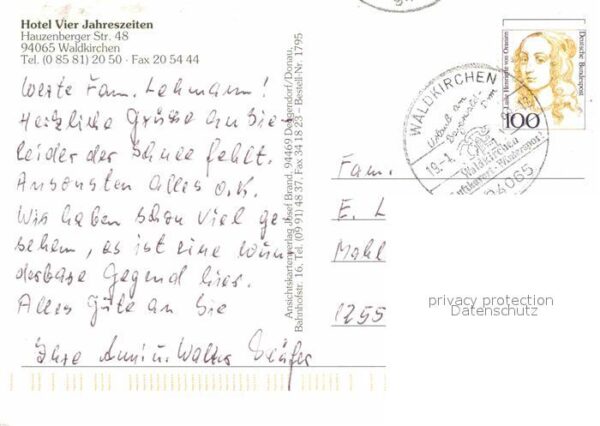 Hotel Vier Jahreszeiten
Hauzenberger Str. 48
94065 Waldkirchen
Tel. (0 85 81) 20 50 · Fax 20 54 44
Werte Fam. Lehmann!
Herzliche Grüße an Sie -
leider der Schnee fehlt.
Ansonsten alles o.k.
Wir haben schon viel ge-
sehen, es ist eine wun-
derbare Gegend hier.
Alles Gute an Sie
Ihre Anni u. Walter
Ansichtskartenverlag Josef Brand, 94469 Deggendorf/Donau,
Bahnhofstr. 16, Tel. (09 91) 48 37, Fax 34 18 23 – Bestell-Nr. 1795
WALDKIRCHEN
Urlaub am
19.-1.
Waldkirchen
Luftkurort-Wintersport
94065
Luise Henriette von Oranien
Deutsche Bundespost
100
Fam.
E. L
Mahl
1255
privacy protection
Datenschutz